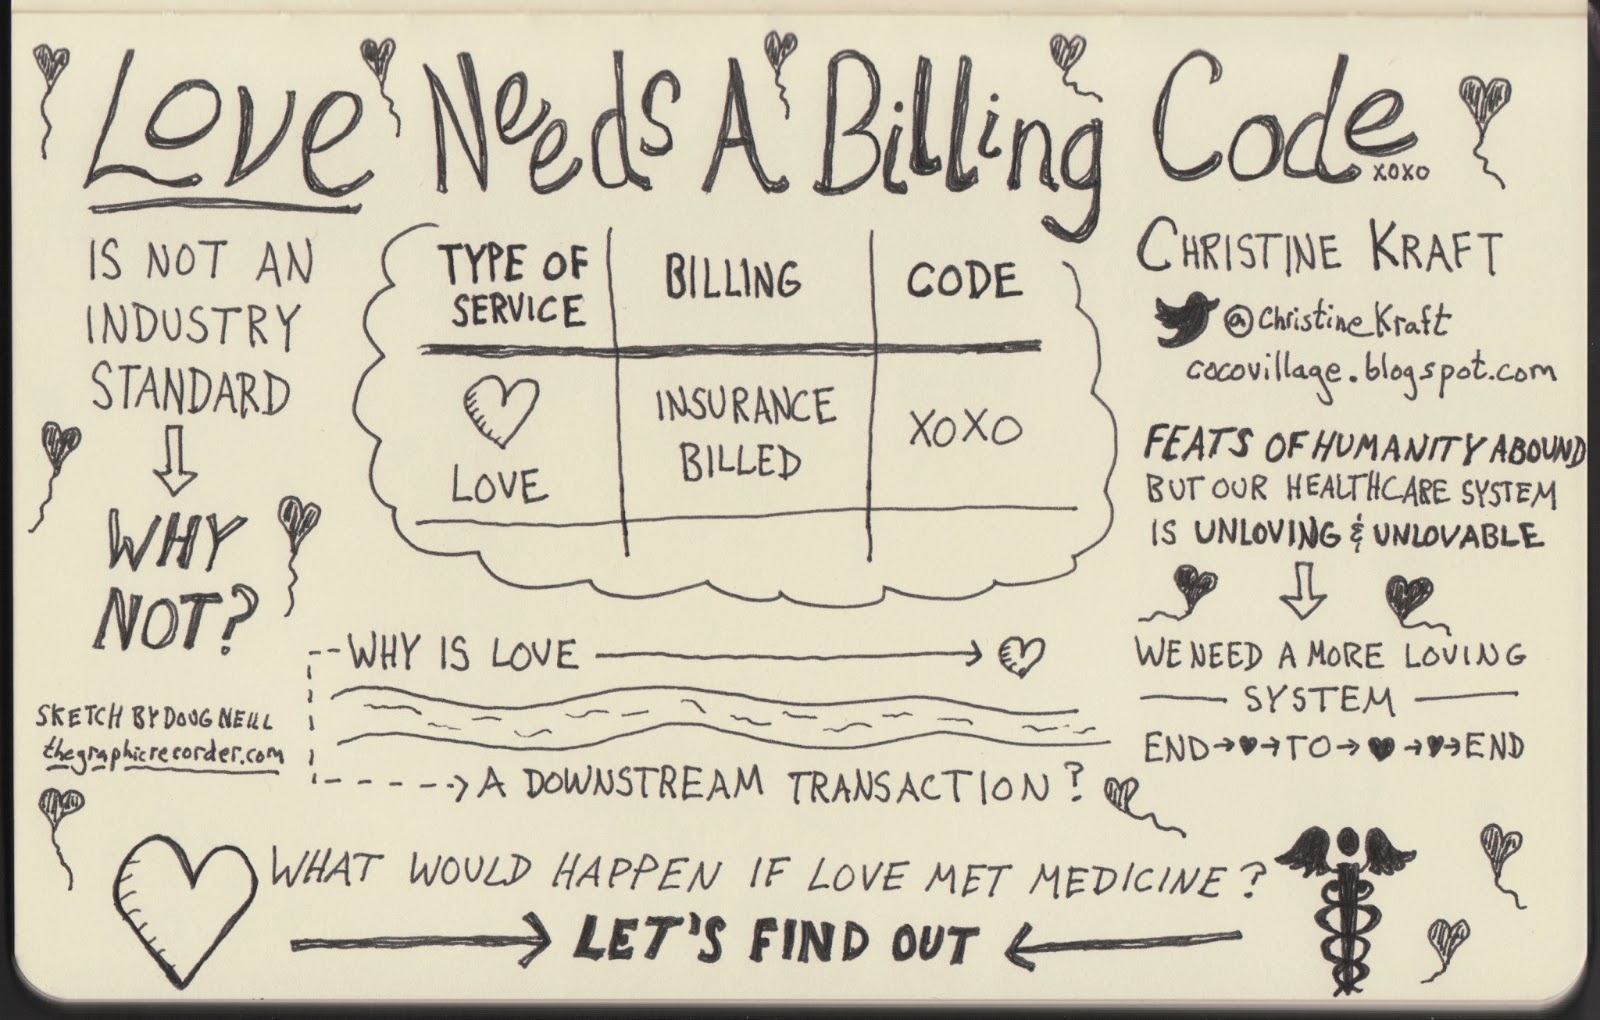 Love Needs A Billing Code
xoxo
IS NOT AN
INDUSTRY
STANDARD
WHY
NOT?
SKETCH BY DOUG NEILL
thegraphicrecorder.com
TYPE OF
SERVICE
BILLING
CODE
LOVE
INSURANCE
BILLED
XOXO
CHRISTINE KRAFT
@Christine_Kraft
cocovillage.blogspot.com
FEATS OF HUMANITY ABOUND
BUT OUR HEALTHCARE SYSTEM
IS UNLOVING & UNLOVABLE
WE NEED A MORE LOVING
SYSTEM
END TO END
WHY IS LOVE
A DOWNSTREAM TRANSACTION?
WHAT WOULD HAPPEN IF LOVE MET MEDICINE?
LET'S FIND OUT